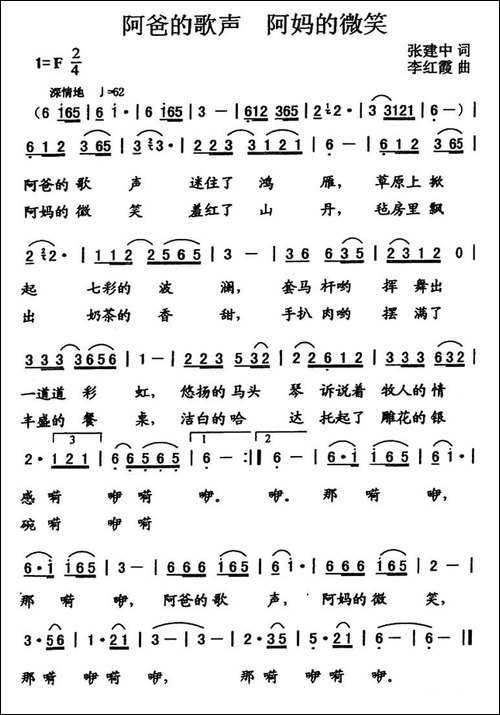 阿爸的歌声 阿妈的微笑
1=F 2/4
张建中 词
李红霞 曲
深情地 ♩=62
(6 i65 | 6 i· | 6 i65 | 3 - | 612 365 | 2 1/2 2· | 3 3121 | 6 - )|
6 1 2 3 65 | 3 2/3 3· | 2 2 3 3 1 2 1 | 6 - | 6 1 2 3 65 |
阿爸的 歌 声 迷住了 鸿 雁, 草原上 掀
阿妈的 微 笑 羞红了 山 丹, 毡房里 飘
2 1/2 2· | 1 1 2 2 5 6 5 | 3 - | 3 6 6 3 5 | 2 3 1 2 0 |
起 七彩的 波 澜, 套马 杆哟 挥 舞出
出 奶茶的 香 甜, 手扒 肉哟 摆 满了
3 3 3 3 6 5 6 | 1 - | 2 2 3 5 32 | 2 2 6 1 2 | 3 3 3 6 32 |
一道道 彩 虹, 悠扬的 马头 琴 诉说着 牧人的 情
丰盛的 餐 桌, 洁白的 哈 达 托起了 雕花的 银
2· 1 2 1 | 6 6 5 6 5 | 6 - :|| 6 - | 6 i65 | 6 i· |
感 嗬 咿嗬 咿。 咿。 那 嗬 咿,
碗 嗬 咿嗬
6· i i65 | 3 - | 6 6 6 i65 | 3 - | 6 6 6 i65 | i - |
那 嗬 咿, 阿爸的 歌 声, 阿妈的 微 笑,
3· 56 | 1· 21 | 3 - | 3 - | 2· 35 | 5· 21 | 6 - | 6 - ||
那嗬 咿嗬 咿, 那嗬 咿嗬 咿。